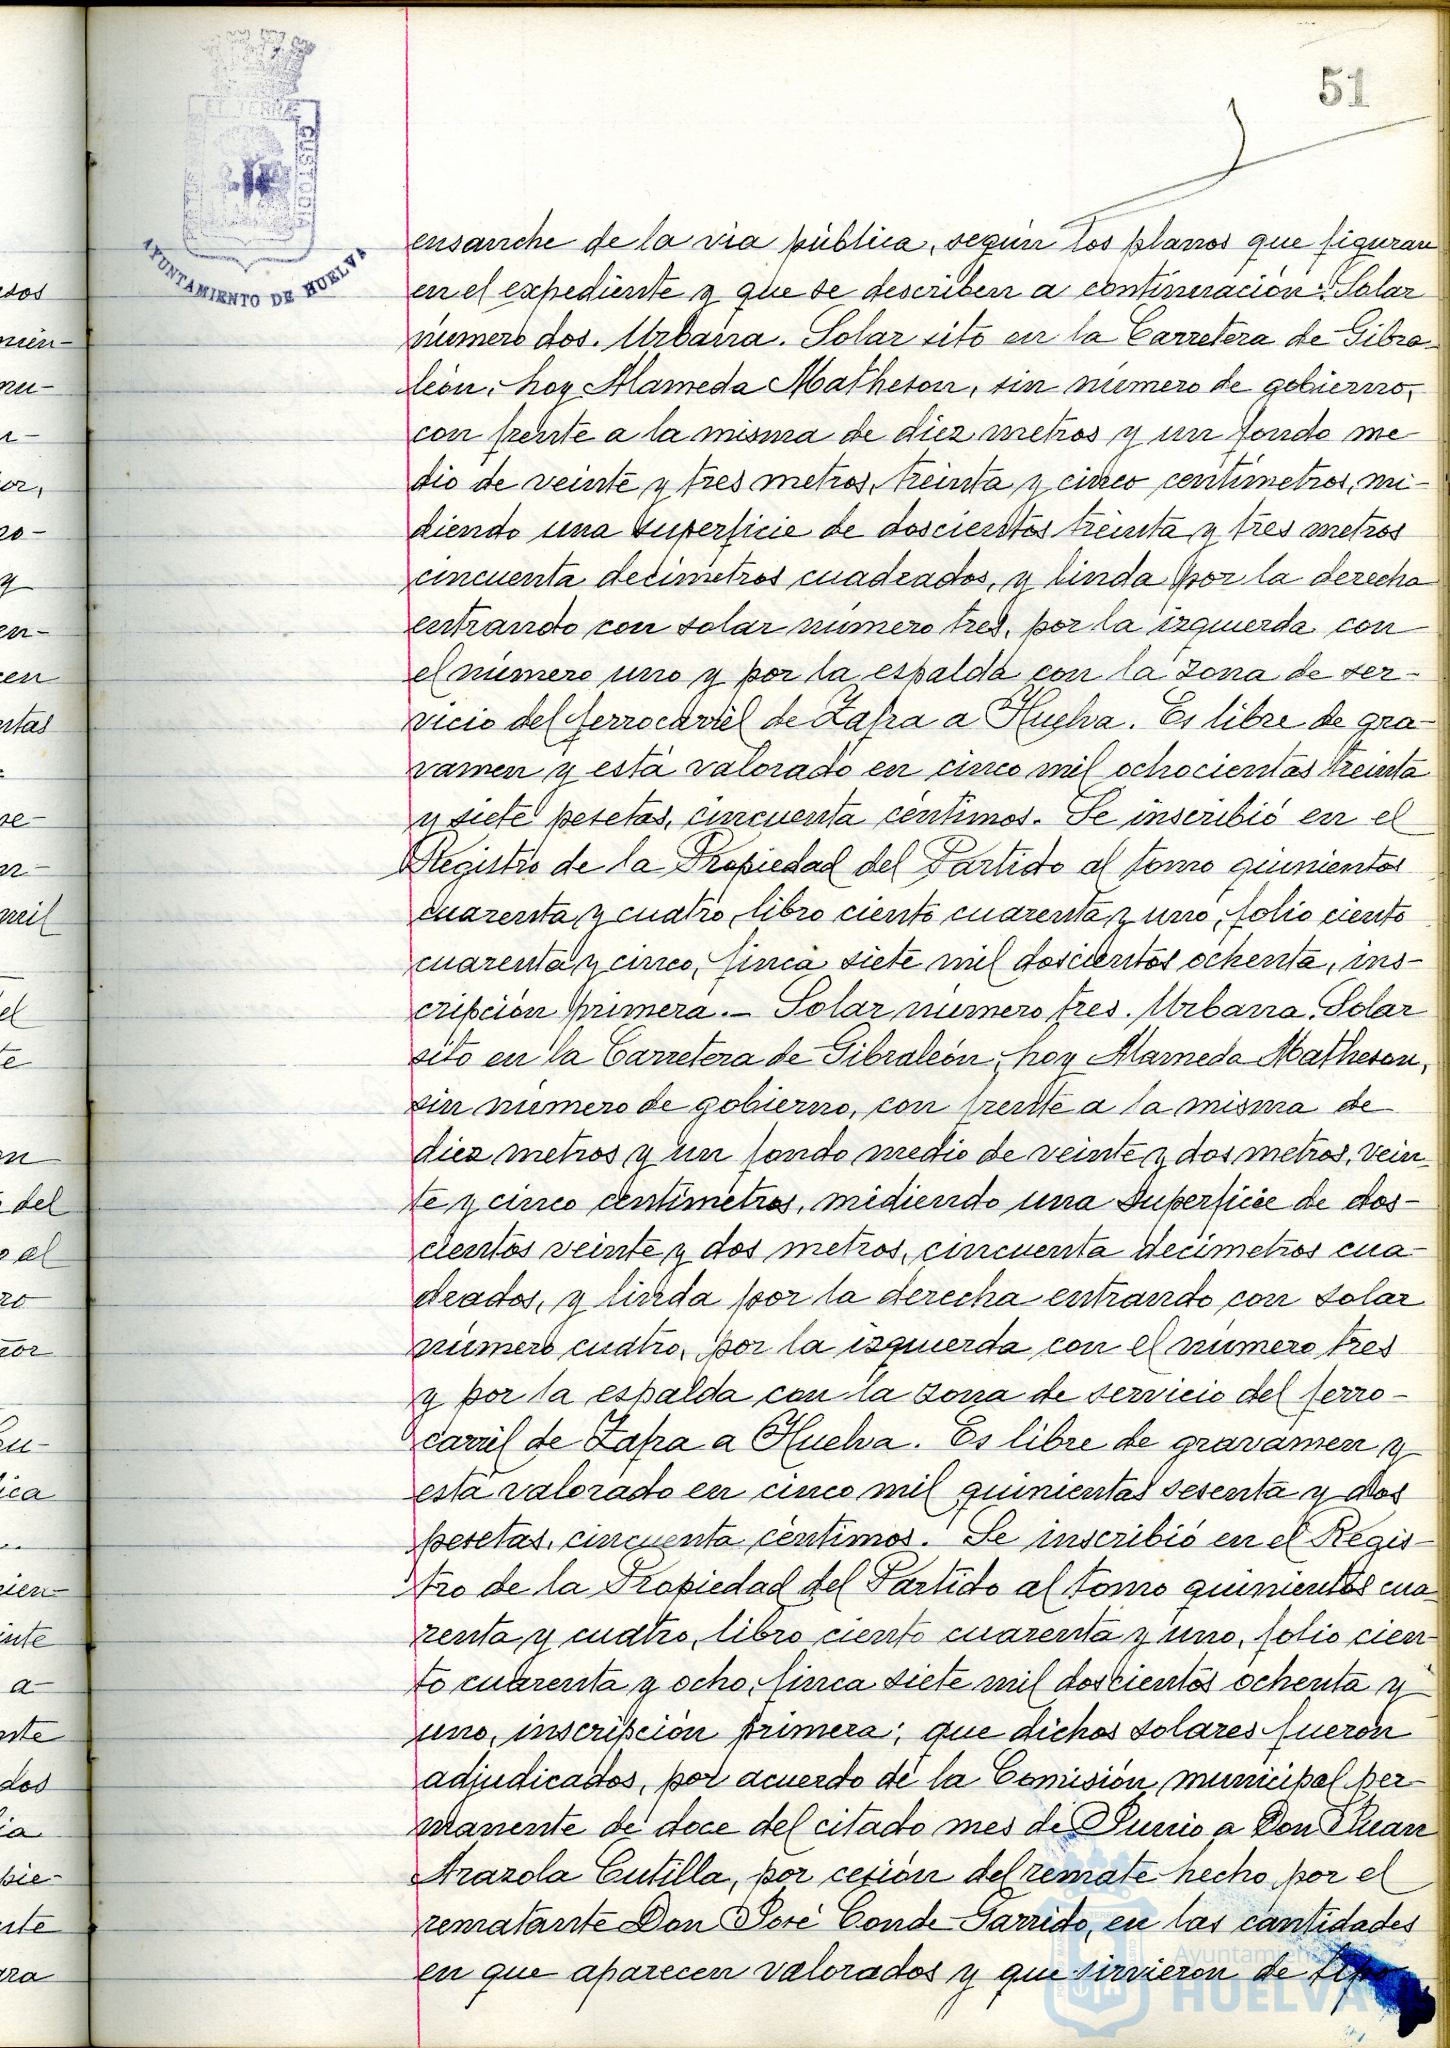 51
AYUNTAMIENTO DE HUELVA
ensanche de la via pública, según los planos que figuran
en el expediente y que se describen a continuación: Solar
número dos. Urbana. Solar sito en la Carretera de Gibra-
león, hoy Alameda Matheson, sin número de gobierno,
con frente a la misma de diez metros y un fondo me-
dio de veinte y tres metros, treinta y cinco centímetros, mi-
diendo una superficie de doscientos treinta y tres metros
cincuenta decímetros cuadrados, y linda por la derecha
entrando con solar número tres, por la izquierda con
el número uno y por la espalda con la zona de ser-
vicio del ferrocarril de Zafra a Huelva. Es libre de gra-
vamen y está valorado en cinco mil ochocientas treinta
y siete pesetas, cincuenta céntimos. Se inscribió en el
Registro de la Propiedad del Partido al tomo quinientos
cuarenta y cuatro, libro ciento cuarenta y uno, folio ciento
cuarenta y cinco, finca siete mil doscientos ochenta, ins-
cripción primera.- Solar número tres. Urbana. Solar
sito en la Carretera de Gibraleón, hoy Alameda Matheson,
sin número de gobierno, con frente a la misma de
diez metros y un fondo medio de veinte y dos metros, vein-
te y cinco centímetros, midiendo una superficie de dos-
cientos veinte y dos metros, cincuenta decímetros cua-
drados, y linda por la derecha entrando con solar
número cuatro, por la izquierda con el número tres
y por la espalda con la zona de servicio del ferro-
carril de Zafra a Huelva. Es libre de gravamen y
está valorado en cinco mil quinientas sesenta y dos
pesetas, cincuenta céntimos. Se inscribió en el Regis-
tro de la Propiedad del Partido al tomo quinientos cua-
renta y cuatro, libro ciento cuarenta y uno, folio cien-
to cuarenta y ocho, finca siete mil doscientos ochenta y
uno, inscripción primera; que dichos solares fueron
adjudicados, por acuerdo de la Comisión municipal per-
manente de doce del citado mes de Junio a Don Juan
Arazola Cutilla, por cesión del remate hecho por el
rematante Don José Conde Garrido, en las cantidades
en que aparecen valorados y que sirvieron de tipo
Ayuntamiento
HUELVA